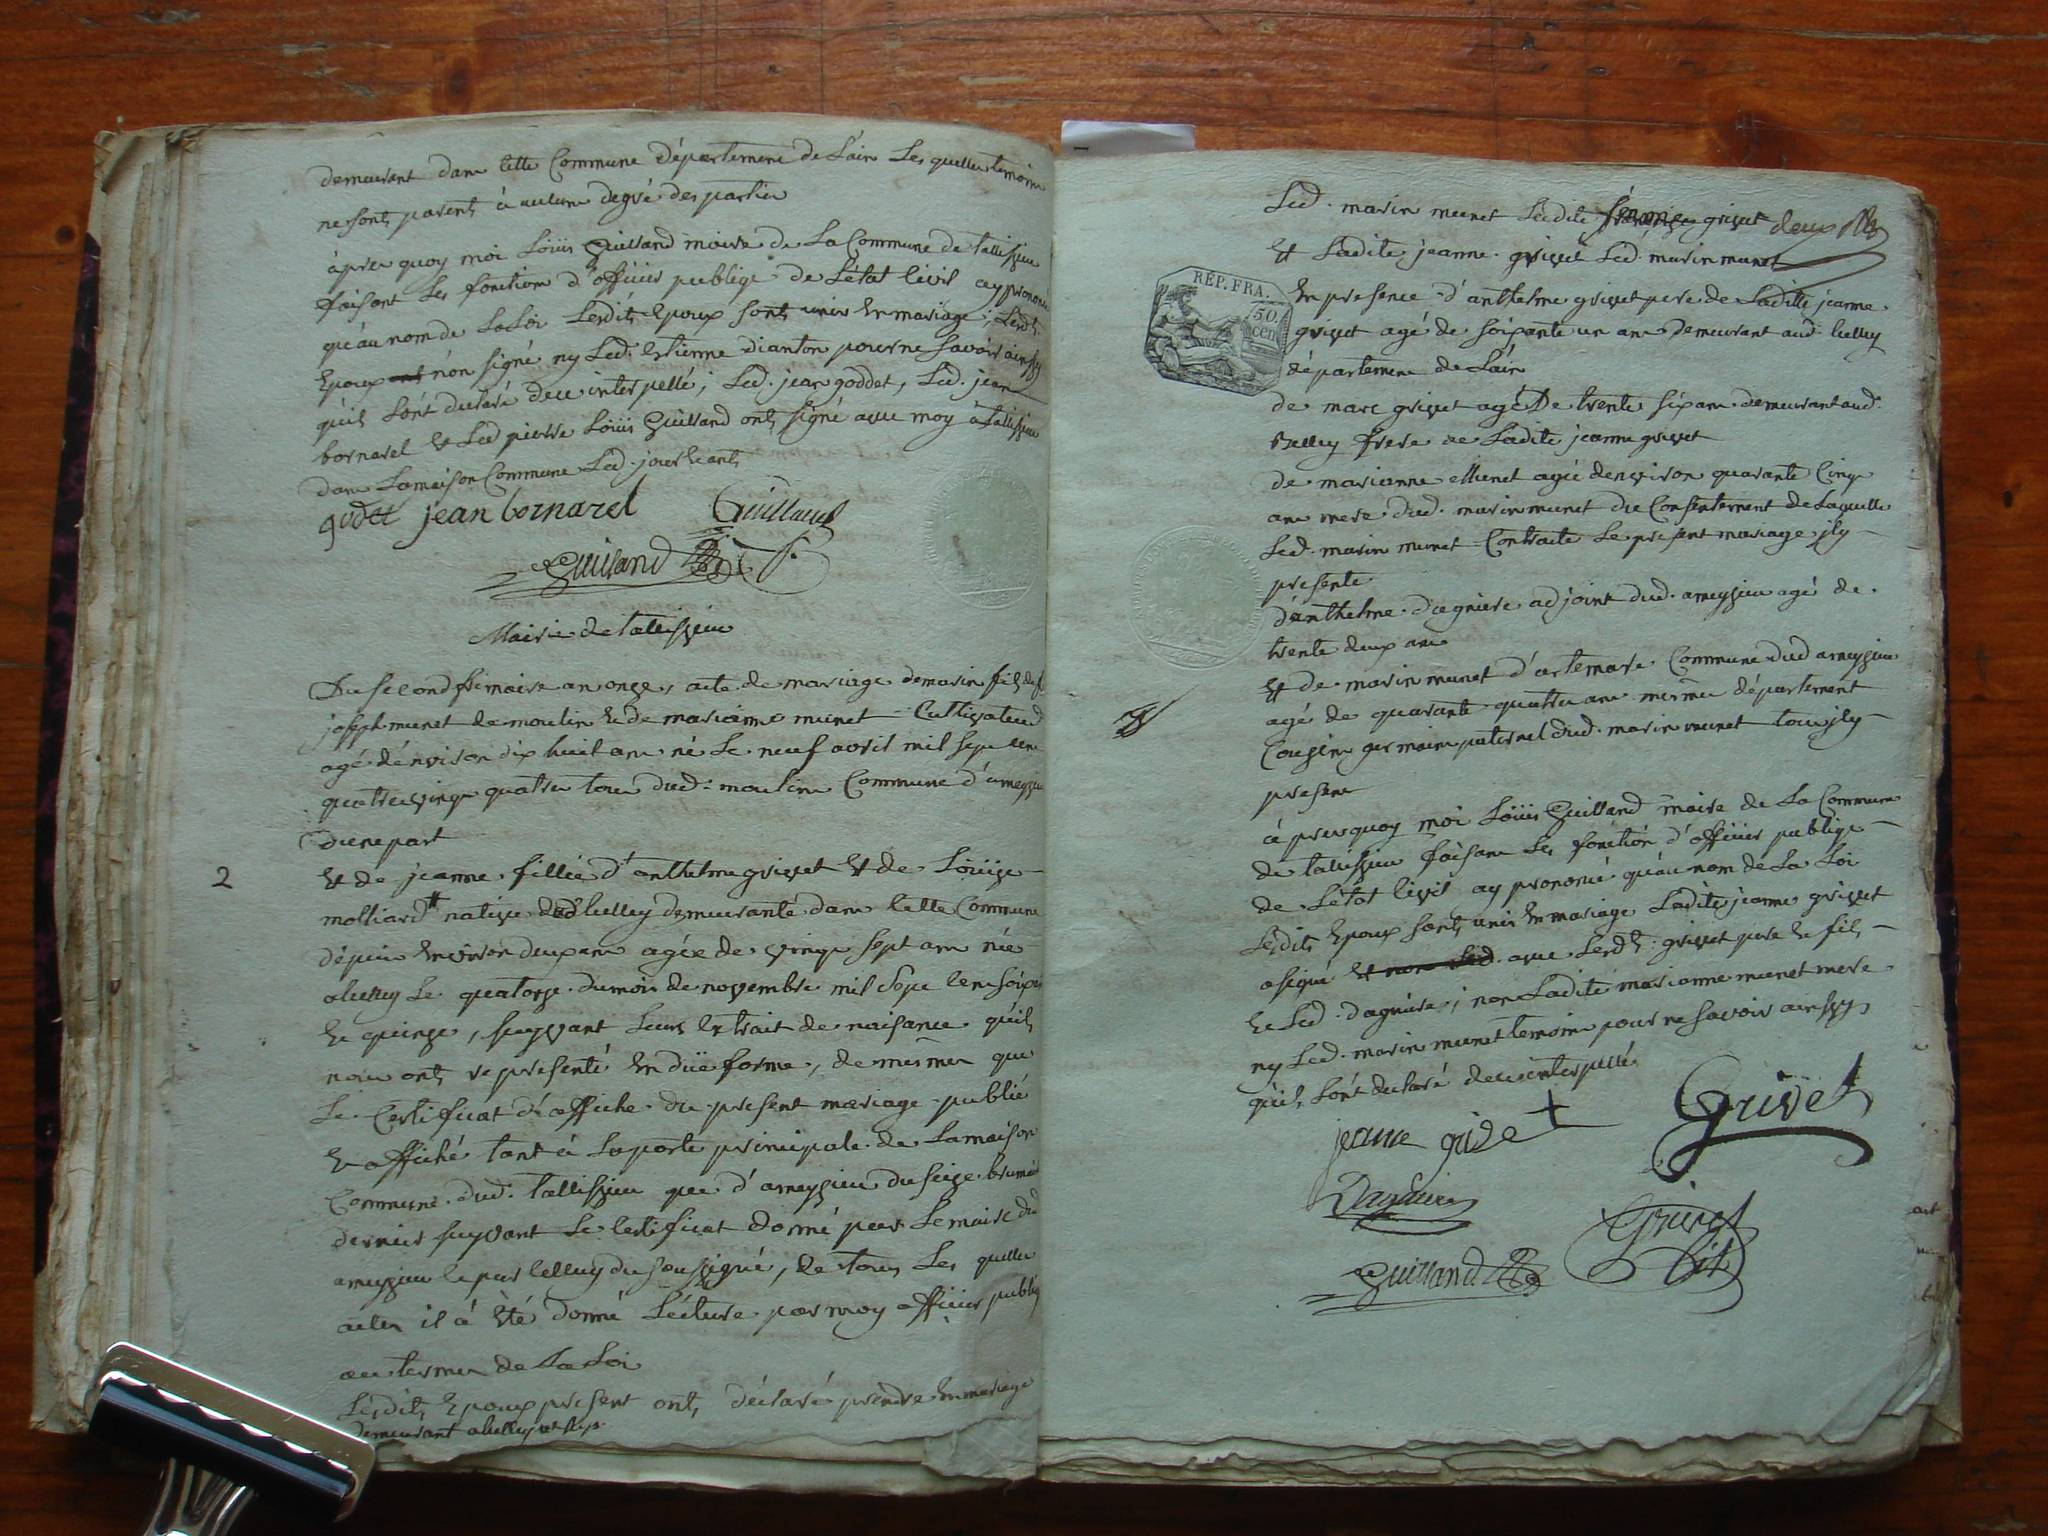 demeurant dans cette Commune département de Lain Les quelles temoins
ne sont parents à aucuns degré des parties
àpres quoy moi Loüis Guilland maire de La Commune de tallissieu
faisant Les fonctions d'officier publique de Létat Civil ay prononcé
qu'au nom de La Loi Lesdits Epoux sont unis En mariage ; Lesdts
Epoux ont nón signé ny Led. Estienne dianton pour ne savoir ainsÿ
qu'ils lónt declaré de ce interpellé ; Led. jean goddet, Led. jean
bornarel et Led pierre Loüis Guilland ont signé avec moy à tallissieu
dans La maison Commune Led. jour et ant
godet jean bornarel Guilland
Guilland
Mairie de tallissieu
Du second frimaire an onze, acte de mariage de marin fils de f
joseph munet de moulin et de marianne munet Cultivateur
agé dénviron dix huit ans né Le neuf avril mil sept cent
quatre vingt quatre tous dud. moulin Commune d'ameyzieu
dune part
2
et de jeanne fillie d'anthelme grivet et de Loüize
molliard # native dud belley demeurante dans cette Commune
dépuis Environ deux ans agée de vingt sept ans née
a belley Le quatorze du mois de novembre mil sept cent soixante
et quinze, suyvant Leurs Extrait de naisance quils
nous ont représenté En düe forme, de mesme que
Le Certificat d'affiche du présent mariage publié
et affiché tant à La porte principale de La maison
Commune dud. tallissieu que d'ameyzieu du seize brumaire
dernier suyvant Le Certificat donné par Le maire dud
ameyzieu et par belley du soussigné, de tous Les quelles
actes il á été donné Lécture par moy officier publiq
au termes de La Loi
Lesdits Epoux présent ont déclaré prendre En mariage
# demeurant a belley
Led. marin munet Ladite grivet
et Ladite jeanne grivet Led. marin munet
REP. FRA.
50.
cen
En presence d'anthelme grivet pere de Ladite jeanne
grivet agé de soixante un ans demeurant aud. belley
département de Lain
de marc grivet agé De trente six ans demeurant aud.
Belley frere de Ladite jeanne grivet
de marianne Munet agée denviron quarante Cinq
ans mere dud. marin munet du Consentement de Laquelle
Led. marin munet Contracte Le présent mariage jly
presente
d'anthelme dagniere adjoint dud. ameyzieu agé de
trente deux ans
et de marin munet d'artemare Commune dud ameyzieu
agé de quarante quatre ans mesme département
Cousin germain paternel dud. marin munet tous jly
present
à pres quoy moi Loüis Guilland maire de La Commune
de tallissieu faisant Les fonction d'officier publique
de Létat Civil ay prononcé qu'au nom de La Loi
Lesdits Epoux sont unis En mariage Ladite jeanne grivet
a signé et non Led. avec Lesdts. grivet pere et fils
et Led. dagniere ; non Ladite marianne munet mere
ny Led. marin munet temoin pour ne savoir ainssy
qu'ils lónt declaré de ce interpellé
jeanne grivet Grivet
Dagniere
Grivet fils
Guilland